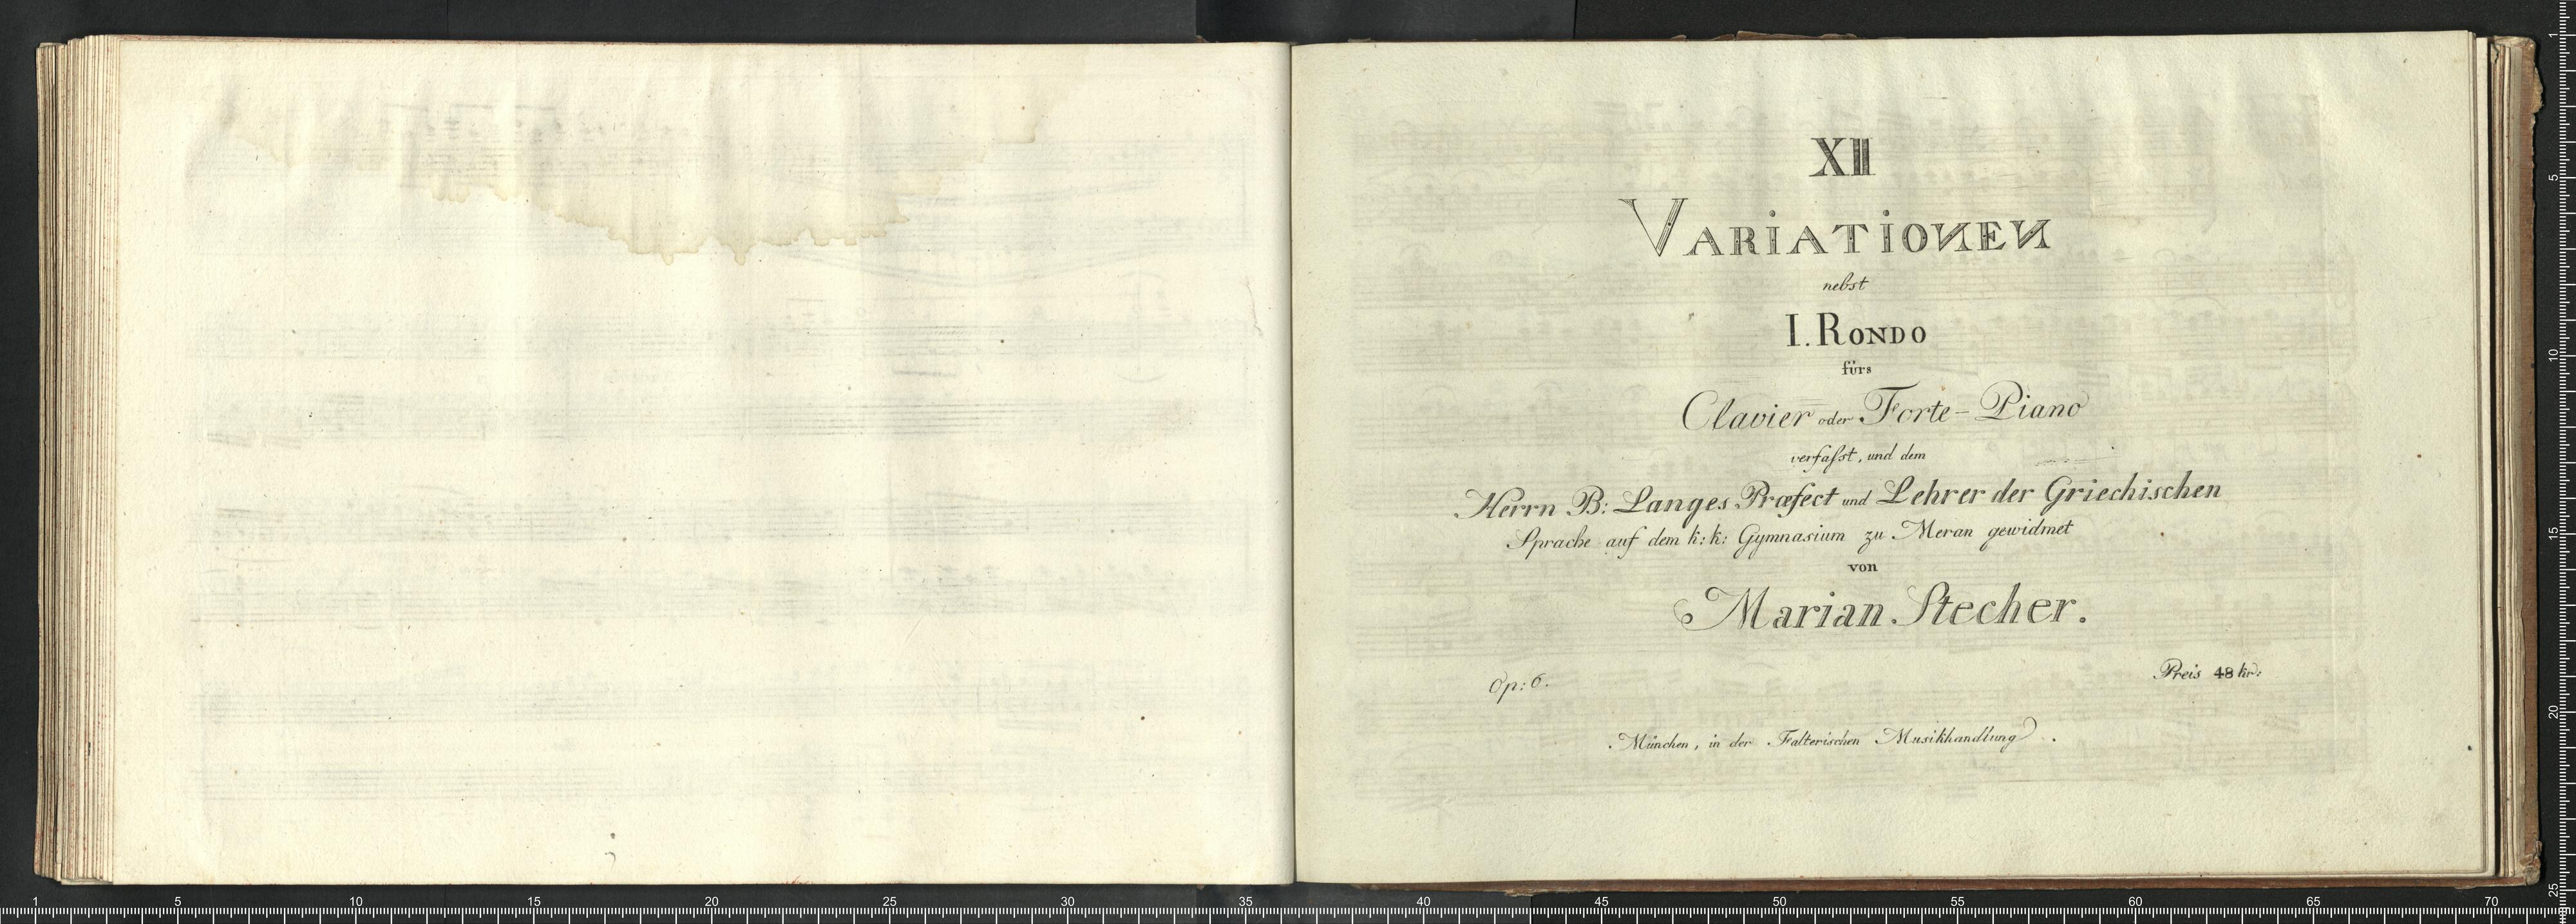 XII
VARiATiONEN
nebst
I. RONDO
fürs
Clavier oder Forte-Piano
verfaſst, und dem
Herrn B: Langes Præfect und Lehrer der Griechischen
Sprache auf dem k: k: Gymnasium zu Meran gewidmet
von
Marian Stecher.
Op: 6.
Preis 48 kr:
München, in der Falterischen Musikhandlung.
1 5 10 15 20 25 30 35 40 45 50 55 60 65 70
1
5
10
15
20
25